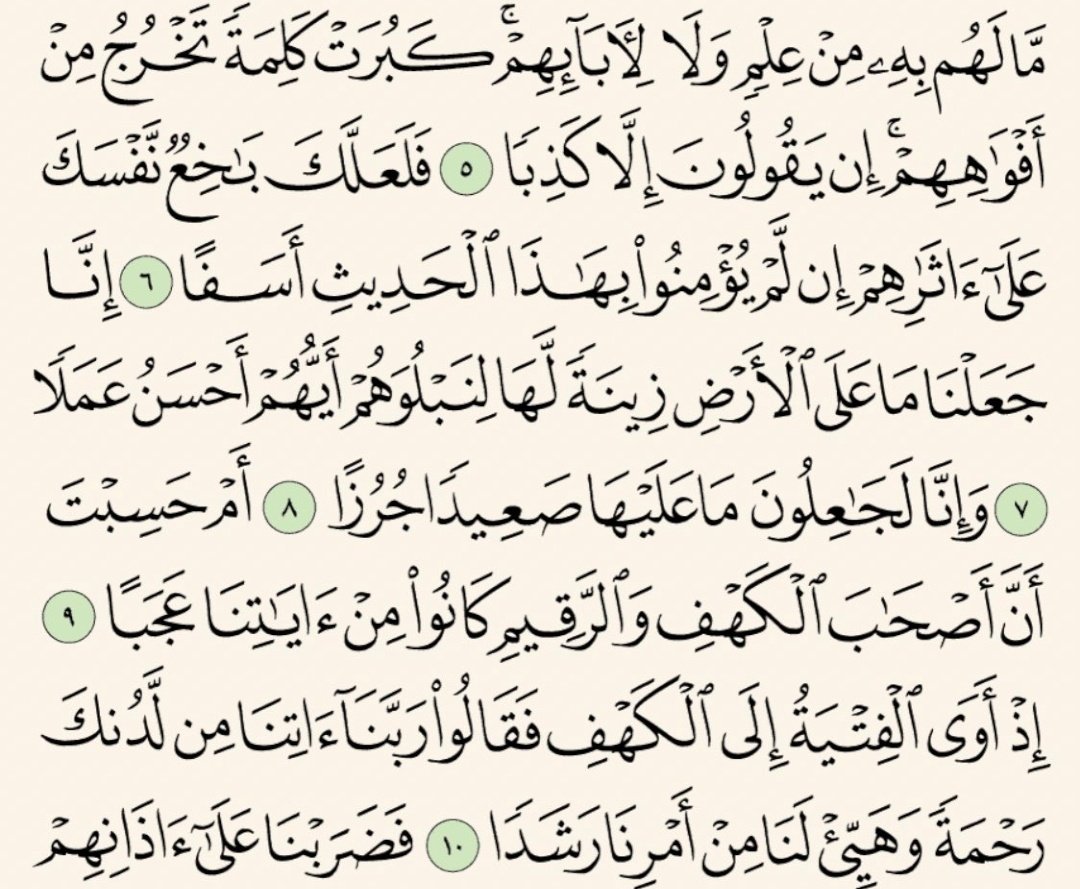 مَّا لَهُم بِهِۦ مِنۡ عِلۡمٖ وَلَا لِأٓبَآئِهِمۡۚ كَبُرَتۡ كَلِمَةٗ تَخۡرُجُ مِنۡ
أَفۡوَٰهِهِمۡۚ إِن يَقُولُونَ إِلَّا كَذِبٗا ٥ فَلَعَلَّكَ بَٰخِعٞ نَّفۡسَكَ
عَلَىٰٓ ءَاثَٰرِهِمۡ إِن لَّمۡ يُؤۡمِنُواْ بِهَٰذَا ٱلۡحَدِيثِ أَسَفًا ٦ إِنَّا
جَعَلۡنَا مَا عَلَى ٱلۡأَرۡضِ زِينَةٗ لَّهَا لِنَبۡلُوَهُمۡ أَيُّهُمۡ أَحۡسَنُ عَمَلٗا
٧ وَإِنَّا لَجَٰعِلُونَ مَا عَلَيۡهَا صَعِيدٗا جُرُزًا ٨ أَمۡ حَسِبۡتَ
أَنَّ أَصۡحَٰبَ ٱلۡكَهۡفِ وَٱلرَّقِيمِ كَانُواْ مِنۡ ءَايَٰتِنَا عَجَبًا ٩
إِذۡ أَوَى ٱلۡفِتۡيَةُ إِلَى ٱلۡكَهۡفِ فَقَالُواْ رَبَّنَآ ءَاتِنَا مِن لَّدُنكَ
رَحۡمَةٗ وَهَيِّئۡ لَنَا مِنۡ أَمۡرِنَا رَشَدٗا ١٠ فَضَرَبۡنَا عَلَىٰٓ ءَاذَانِهِمۡ